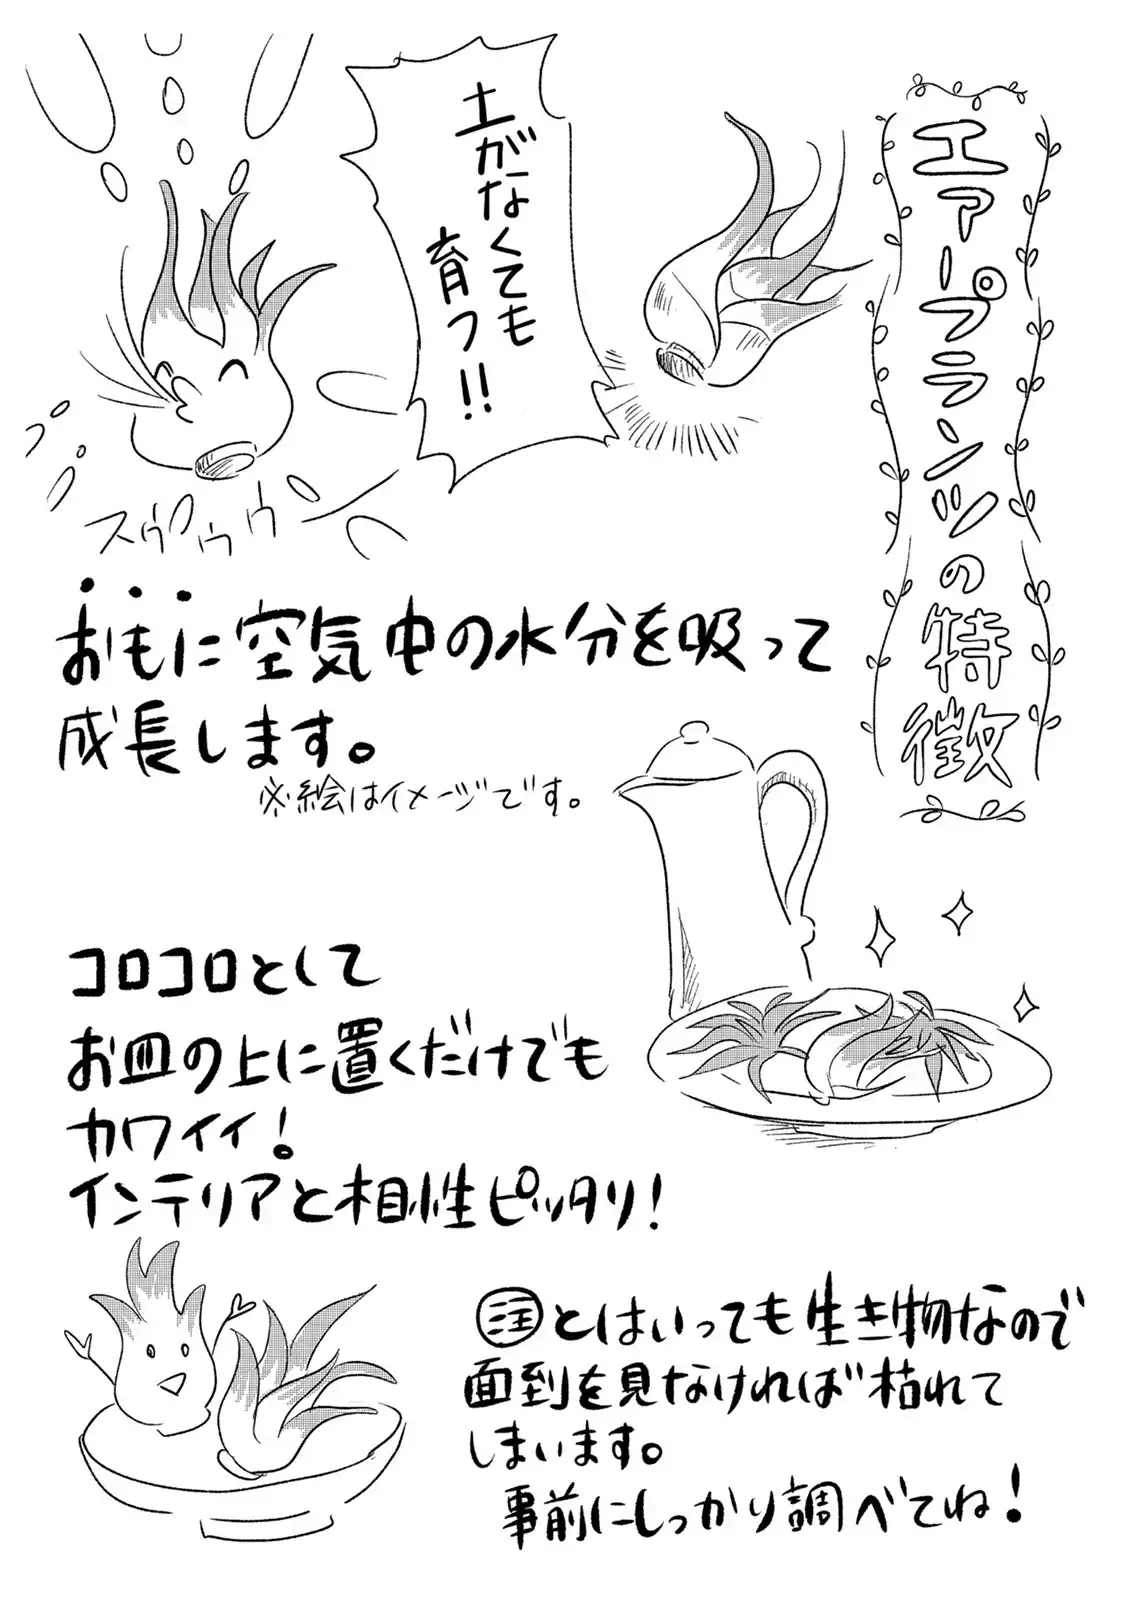 エアープランツの特徴
土がなくても
育つ!!
スゥゥゥゥ
おもに空気中の水分を吸って
成長します。
※絵はイメージです。
コロコロとして
お皿の上に置くだけでも
カワイイ!
インテリアと相性ピッタリ!
注とはいっても生き物なので
面到を見なければ枯れて
しまいます。
事前にしっかり調べてね!